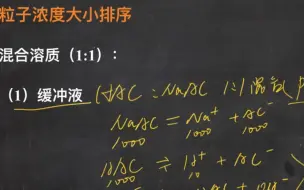 粒子浓度大小排序
混合溶质（1:1）：
（1）缓冲液 HAC : NaAC 1:1混合
NaAC = Na⁺ + AC⁻
1000 1000 1000
HAC ⇌ H⁺ + AC⁻
1000 10